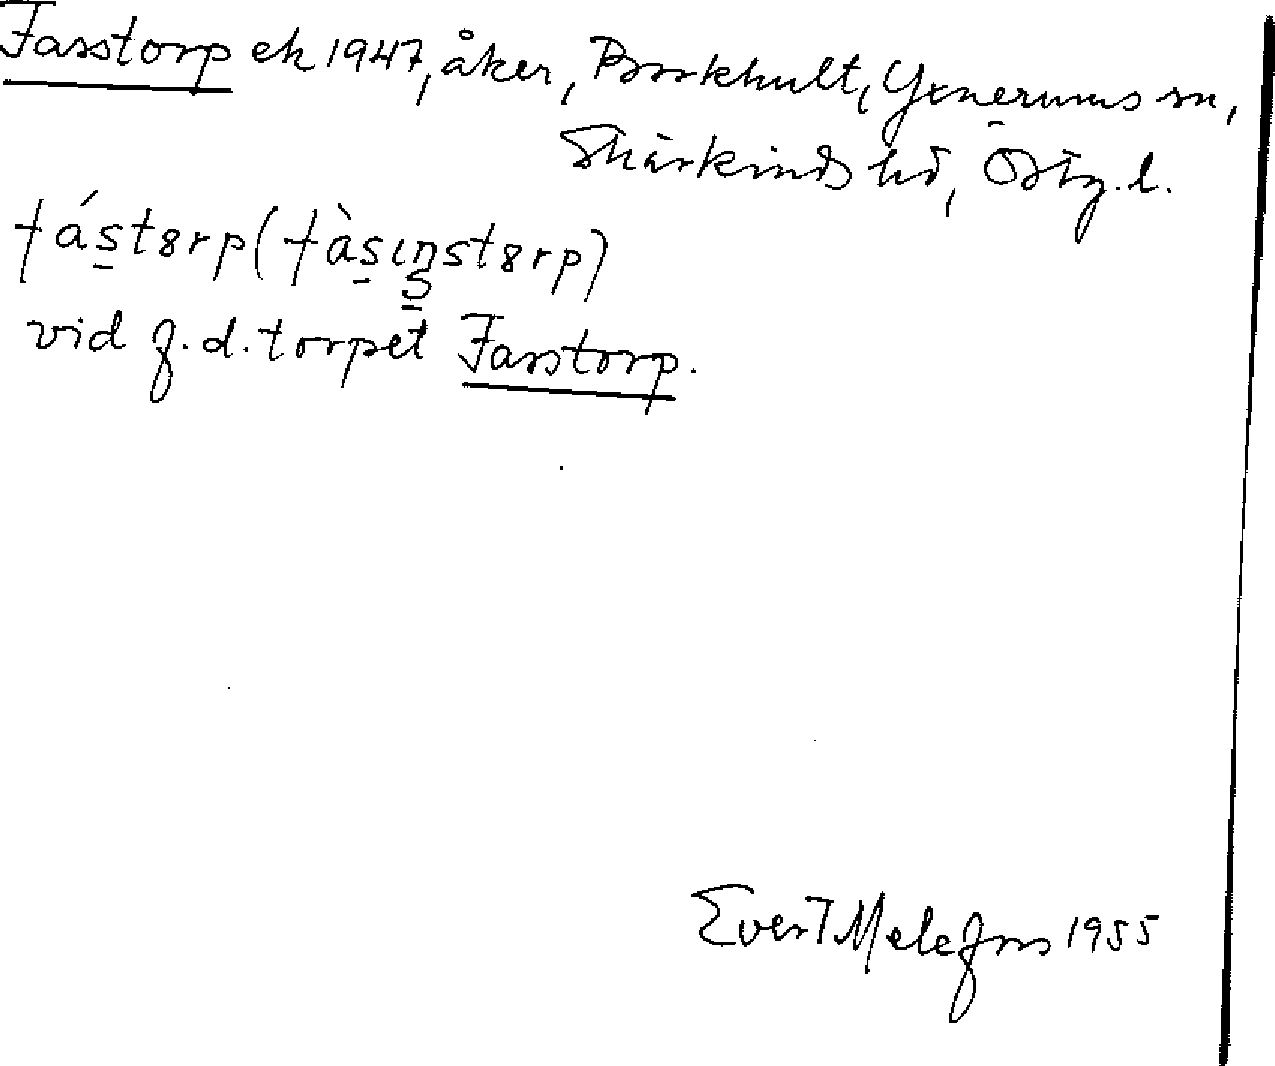 Fasstorp ek 1947, åker, Borkhult, Yxnerums sn,
Skärkinds hd, Östg.l.
fást8rp (fàsiŋst8rp)
vid f.d. torpet Fasstorp.
Evert Melefors 1955